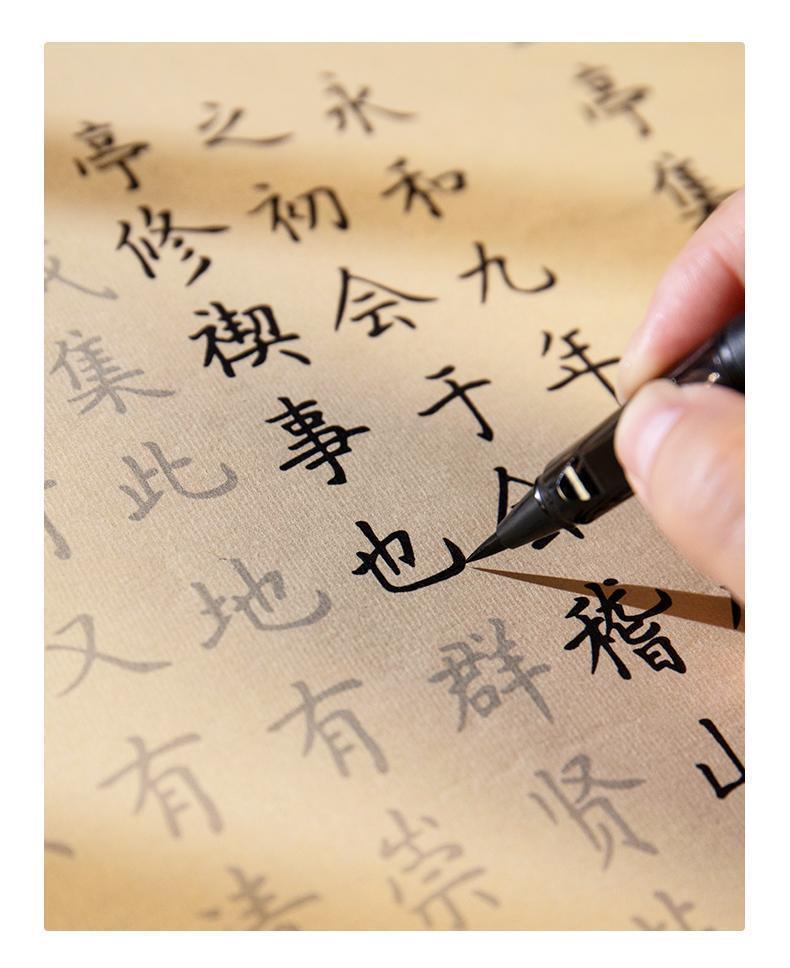 亭集
永和九年
之初会于稽山
亭修禊事也群贤
集此地有崇
又有清